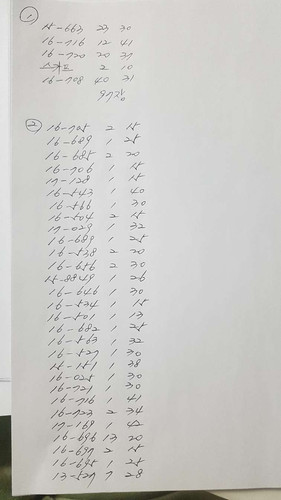 ①
15-663 23 30
16-716 12 41
16-720 20 27
스카프 2 10
16-708 40 31
97장
② 16-705 2 15
16-689 1 25
16-685 2 20
16-706 1 15
17-128 1 15
16-543 1 40
16-566 1 30
16-504 2 15
17-029 1 32
16-689 1 25
16-538 2 20
16-656 2 30
15-8849 1 26
16-646 1 30
16-534 1 15
16-501 1 13
16-682 1 25
16-563 1 32
16-527 1 30
15-151 1 38
16-025 1 30
16-721 1 30
16-716 1 41
16-723 2 34
17-168 1 42
16-696 13 20
16-697 2 15
16-695 1 25
13-527 7 28